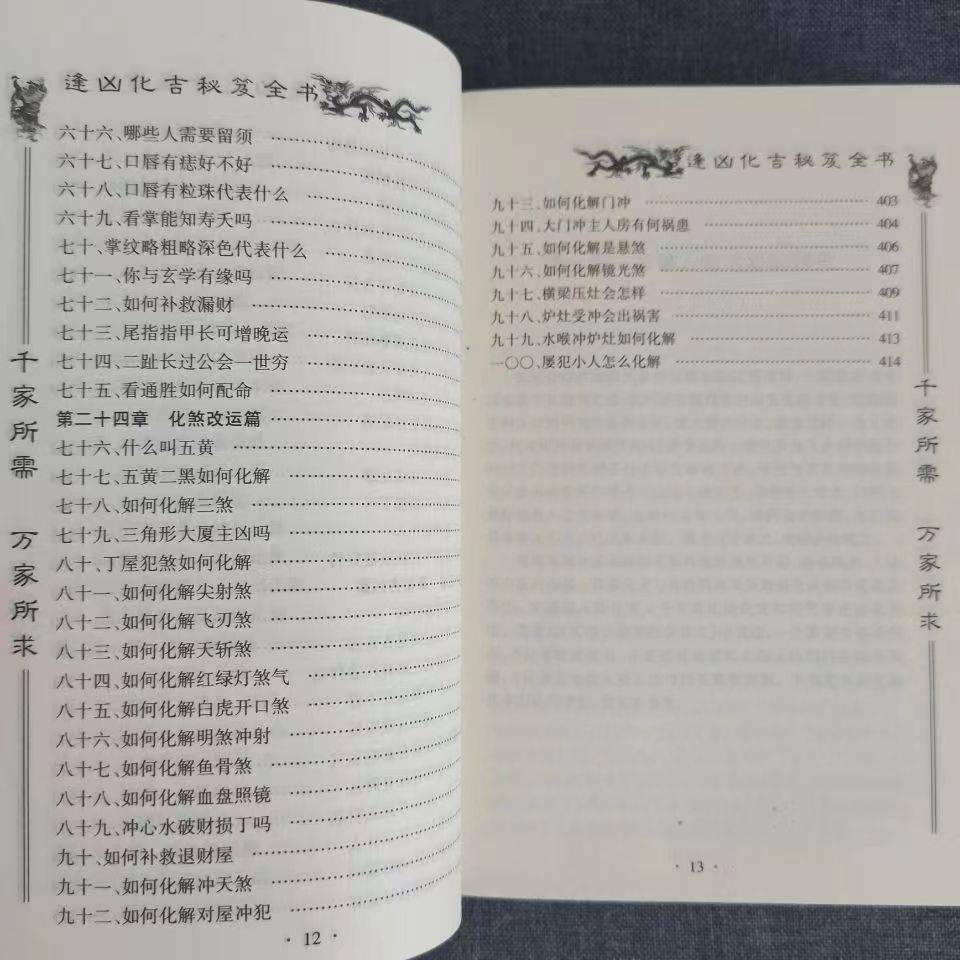 逢凶化吉秘笈全书
六十六、哪些人需要留须
六十七、口唇有痣好不好
六十八、口唇有粒珠代表什么
六十九、看掌能知寿夭吗
七十、掌纹略粗略深色代表什么
七十一、你与玄学有缘吗
七十二、如何补救漏财
七十三、尾指指甲长可增晚运
七十四、二趾长过公会一世穷
七十五、看通胜如何配命
第二十四章 化煞改运篇
七十六、什么叫五黄
七十七、五黄二黑如何化解
七十八、如何化解三煞
七十九、三角形大厦主凶吗
八十、丁屋犯煞如何化解
八十一、如何化解尖射煞
八十二、如何化解飞刃煞
八十三、如何化解天斩煞
八十四、如何化解红绿灯煞气
八十五、如何化解白虎开口煞
八十六、如何化解明煞冲射
八十七、如何化解鱼骨煞
八十八、如何化解血盘照镜
八十九、冲心水破财损丁吗
九十、如何补救退财屋
九十一、如何化解冲天煞
九十二、如何化解对屋冲犯
千家所需 万家所求
·12·
逢凶化吉秘笈全书
九十三、如何化解门冲 403
九十四、大门冲主人房有何祸患 404
九十五、如何化解是悬煞 406
九十六、如何化解镜光煞 407
九十七、横梁压灶会怎样 409
九十八、炉灶受冲会出祸害 411
九十九、水喉冲炉灶如何化解 413
一〇〇、屡犯小人怎么化解 414
千家所需 万家所求
·13·